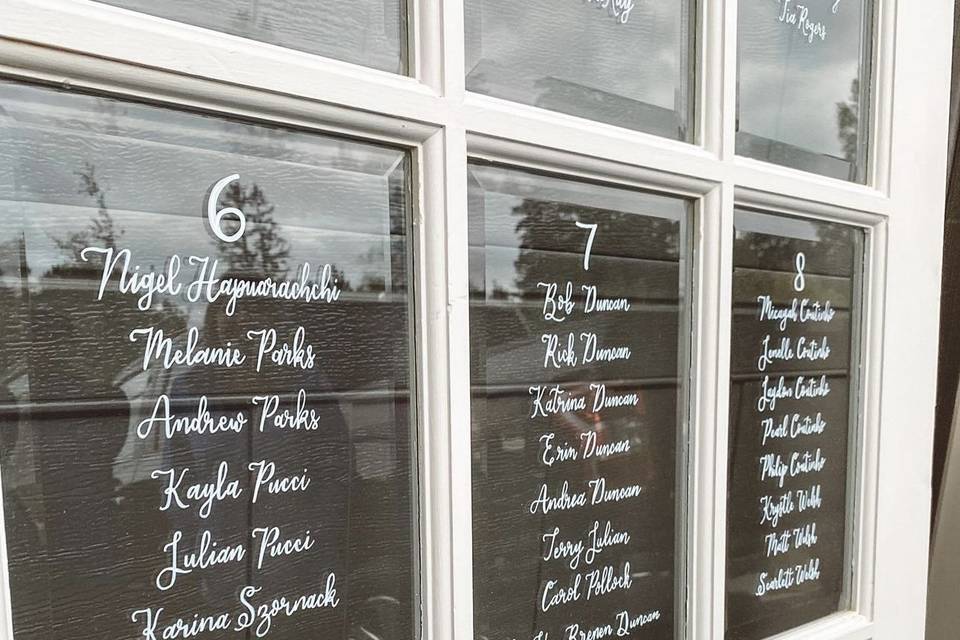 Tia Rogers
6
Nigel Hapuarachchi
Melanie Parks
Andrew Parks
Kayla Pucci
Julian Pucci
Karina Szornack
7
Bob Duncan
Rick Duncan
Katrina Duncan
Erin Duncan
Andrea Duncan
Terry Julian
Carol Pollock
Brenen Duncan
8
Micayah Coutinho
Lenelle Coutinho
Jaydon Coutinho
Pearl Coutinho
Philip Coutinho
Krystle Welsh
Matt Welsh
Scarlett Welsh